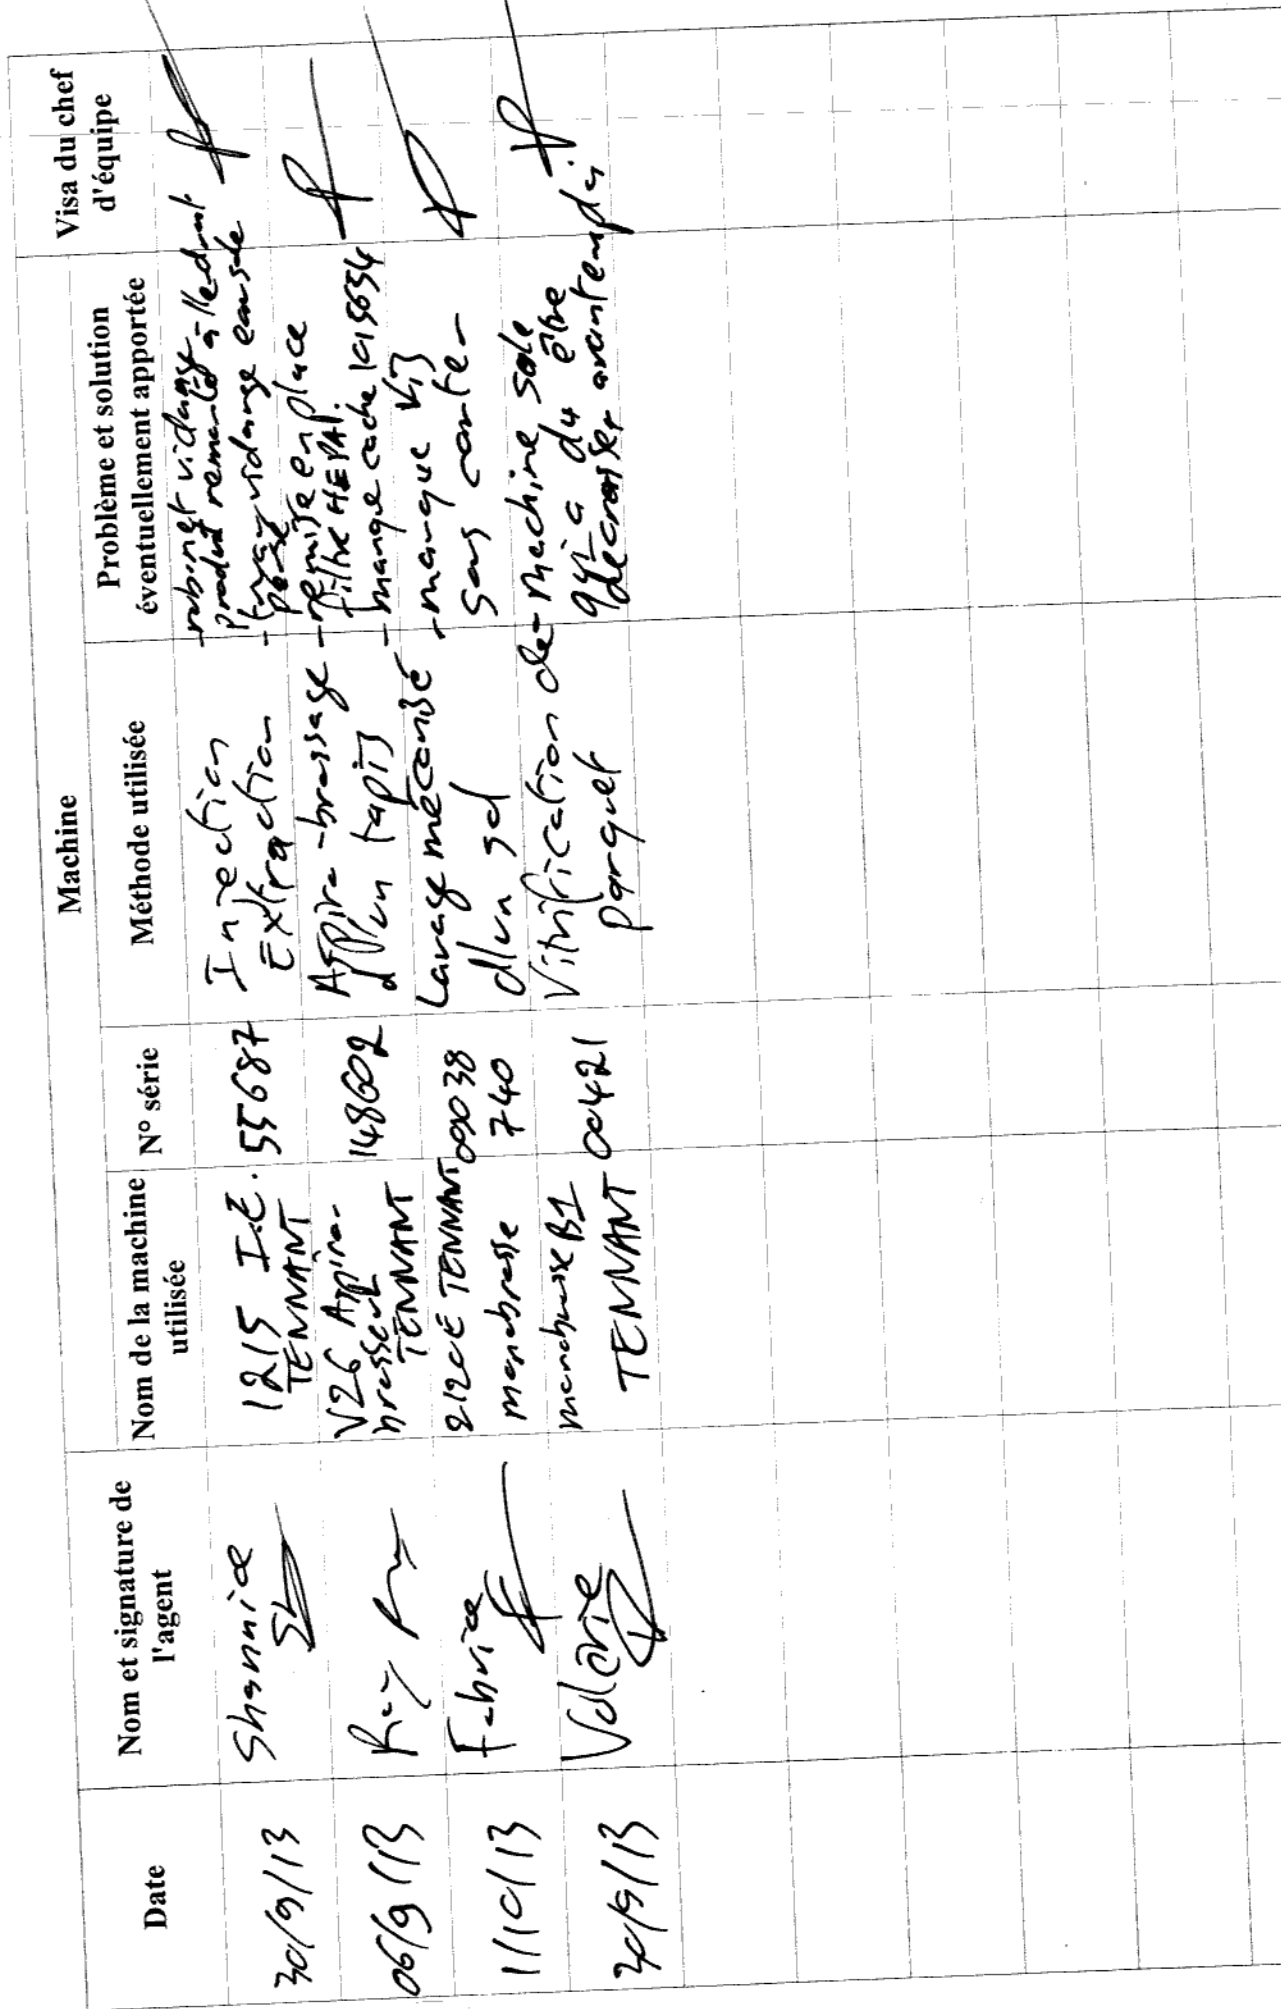 Machine
Date
Nom et signature de
l'agent
Nom de la machine
utilisée
N° série
Méthode utilisée
Problème et solution
éventuellement apportée
Visa du chef
d'équipe
30/9/13
Shannice
1215 I.E.
TENNANT
55687
Injection
Extraction
-robinet vidange
produit remonté à l'endroit
-tuyau vidange
06/9/13
V26 Aspiro-
brosseur
TENNANT
148602
Aspiro-brossage
d'un tapis
-remise en place
filtre HEPA.
-manque cache 1015654
1/10/13
Fabrice
2120E TENNANT
monobrosse
00038
740
Lavage mécanisé
d'un sol
-manque vis
sans
30/9/13
Valérie
monobrosse B1
TENNANT
00421
Vitrification de
parquet
-Machine sale
qui a du être
décrasser avant emploi.